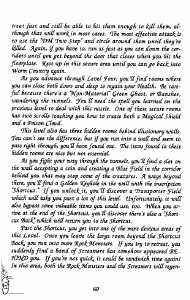 treet fast and still be able to hit them enough to kill them, al-
though that will work in most cases. The most effective attack is
to use the "DM Two Step" and circle around them until they're
killed. Again, if you have to, run as fast as you can down the cor-
ridors until you get beyond the door that closes when you hit the
floorplate. Rest up in this secure area until you can go back into
Worm Country again.
As you advance through Level Four, you'll find rooms where
you can close both doors and sleep to regain your Health. Be care-
ful because there's a "Non-Material" Green Ghost, or Banshee,
wandering the tunnels. You'll need the spell you learned on the
previous level to deal with this nasty. One of these secure rooms
has two scrolls teaching you how to create both a Magical Shield
and a Poison Cloud.
This level also has three hidden rooms behind illusionary walls.
You can't see the difference, but if you run into a wall and seem to
pass right through, you'll have found one. The items found in these
hidden rooms are nice but not essential.
As you fight your way through the tunnels, you'll find a slot on
the wall accepting a coin and creating a Blue Field in the corridor
behind you which may stop some of the creatures. A ways beyond
there, you'll find a Golden Keyhole in the wall with the inscription
"Shortcut." If you unlock it, you'll discover a Transporter Field
which will take you past a lot of this level. Unfortunately, it will
also bypass some valuable items you could use, too. When you ar-
rive at the end of the Shortcut, you'll discover there's also a "Short-
cut Back" which will return you to the Shortcut.
Past the Shortcut, you get into one of the more devious areas of
this Level. Once you leave the large room beyond the Shortcut
Back, you run into more Rock Monsters. If you try to retreat, you
suddenly find a band of Screamers has somehow appeared BE-
HIND you. If you're not quick, it could be sandwich time again!
In this area, both the Rock Monsters and the Screamers will regen-